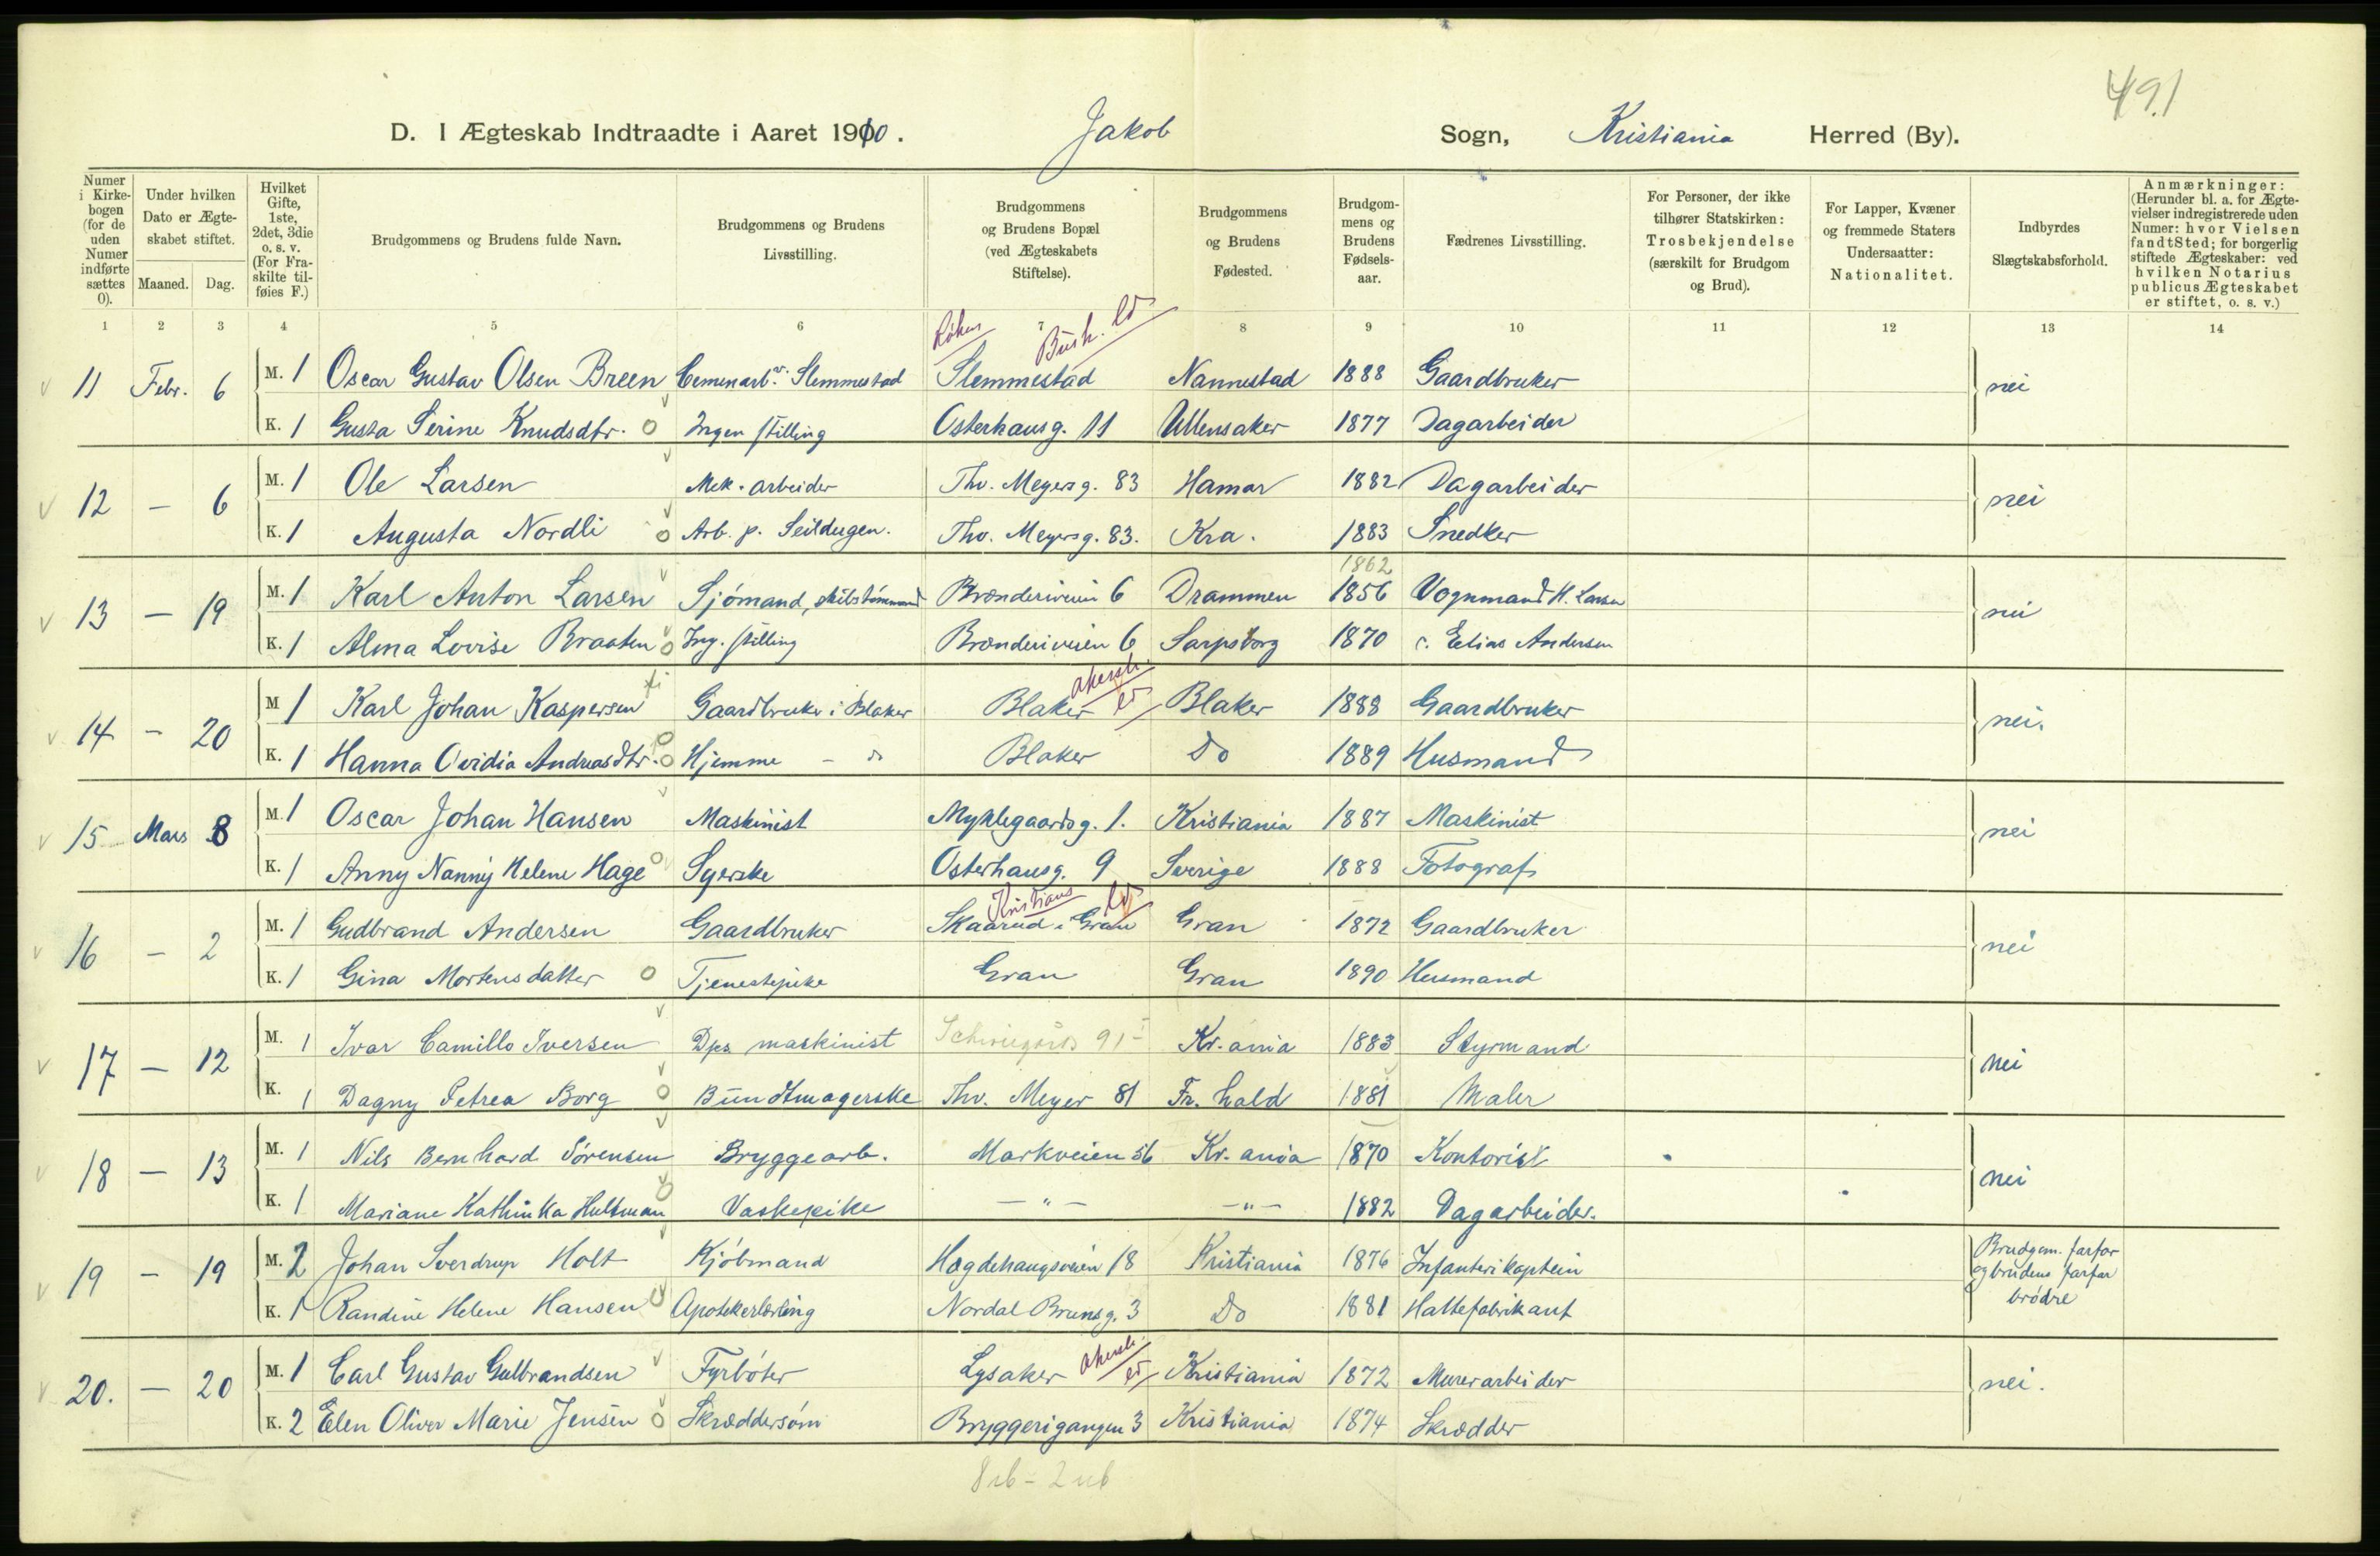 491
D. I Ægteskab Indtraadte i Aaret 1910. Jakob Sogn, Kristiania Herred (By).
Numer i Kirkebogen (for de uden Numer indførte sættes 0).
Under hvilken Dato er Ægteskabet stiftet.
Maaned. Dag.
Hvilket Gifte, 1ste, 2det, 3die o. s. v. (For Fraskilte tilføies F.)
Brudgommens og Brudens fulde Navn.
Brudgommens og Brudens Livsstilling.
Brudgommens og Brudens Bopæl (ved Ægteskabets Stiftelse).
Brudgommens og Brudens Fødested.
Brudgommens og Brudens Fødselsaar.
Fædrenes Livsstilling.
For Personer, der ikke tilhører Statskirken: Trosbekjendelse (særskilt for Brudgom og Brud).
For Lapper, Kvæner og fremmede Staters Undersaatter: Nationalitet.
Indbyrdes Slægtskabsforhold.
Anmærkninger: (Herunder bl. a. for Ægtevielser indregistrerede uden Numer: hvor Vielsen fandt Sted; for borgerlig stiftede Ægteskaber: ved hvilken Notarius publicus Ægteskabet er stiftet, o. s. v.)
1 2 3 4 5 6 7 8 9 10 11 12 13 14
Røken Busk. ld
11 Febr. 6 M. 1 Oscar Gustav Olsen Breen Cemenarb. v. Slemmestad Slemmestad Nannestad 1888 Gaardbruker nei
K. 1 Gusta Serine Knudsdtr. Ingen stilling Osterhausg. 11 Ullensaker 1877 Dagarbeider
12 — 6 M. 1 Ole Larsen Mek. arbeider Thv. Meyersg. 83 Hamar 1882 Dagarbeider nei
K. 1 Augusta Nordli Arb. p. Seildugen. Thv. Meyersg. 83. Kra. 1883 Snedker
1862
13 — 19 M. 1 Karl Anton Larsen Sjømand, skibstømmermand Brænderiveien 6 Drammen 1856 Vognmand H. Larsen nei
K. 1 Alma Lovise Braaten Ing. stilling Brænderiveien 6 Sarpsborg 1870 Elias Andersen
Akersh. ld
14 — 20 M 1 Karl Johan Kaspersen Gaardbruker i Blaker Blaker Blaker 1888 Gaardbruker nei.
K. 1 Hanna Ovidia Andreasdtr. Hjemme — do Blaker Do 1889 Husmand
15 Mars 8 M. 1 Oscar Johan Hansen Maskinist Myklegaardsg. 1. Kristiania 1887 Maskinist nei
K. 1 Anny Nanny Helene Hage Syerske Osterhausg. 9 Sverige 1888 Fotograf
Kristians ld
16 — 2 M. 1 Gudbrand Andersen Gaardbruker Skaarud i Gran Gran 1872 Gaardbruker nei
K. 1 Gina Mortensdatter Tjenestepike Gran Gran 1890 Husmand
17 — 12 M. 1 Ivar Camillo Iversen Dps. maskinist Schweigårds 91 Kr.ania 1883 Styrmand nei
K. 1 Dagny Petrea Borg Buntmagerske Thv. Meyer 81 Fr. hald 1881 Maler
18 — 13 M. 1 Nils Bernhard Sørensen Bryggearb. Markveien 56 Kr.ania 1870 Kontorist nei
K. 1 Mariane Kathinka Hultman Vaskepike — " — — " — 1882 Dagarbeider.
19 — 19 M. 2 Johan Sverdrup Holt Kjøbmand Hægdehaugsveien 18 Kristiania 1876 Infanterikaptein Brudgom. farfar og brudens farfar brødre
K. 1 Randine Helene Hansen Apotekerlærling Nordal Brunsg. 3 Do 1881 Hattefabrikant
Akersh. ld
20. — 20 M. 1 Carl Gustav Gulbrandsen Fyrbøter Lysaker Kristiania 1872 Murerarbeider nei.
K. 2 Elen Oliver Marie Jensen Skræddersøm Bryggerigangen 3 Kristiania 1874 Skrædder